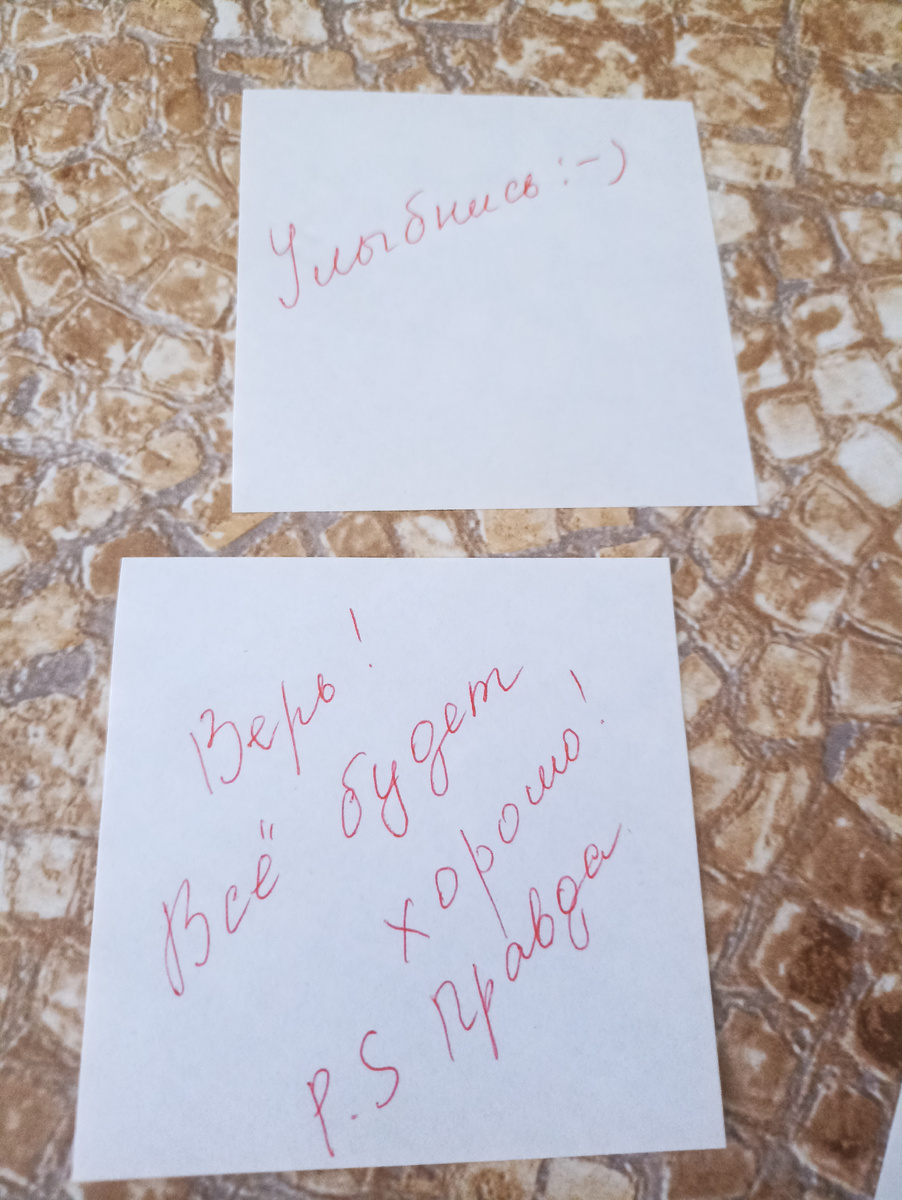 Улыбнись :-)
Верь!
Всё будет
хорошо!
P.S Правда